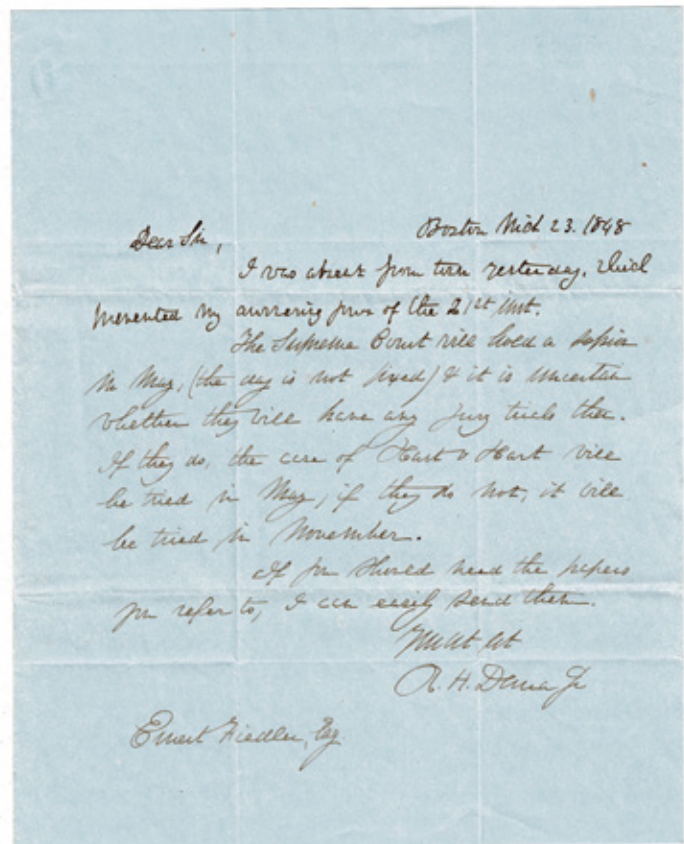 Boston Mch 23. 1848
Dear Sir,
I was absent from town yesterday, which
prevented my answering yours of the 21st inst.
The Supreme Court will hold a session
in May, (the day is not fixed) & it is uncertain
whether they will have any jury trials then.
If they do, the case of Hart v Hart will
be tried in May; if they do not, it will
be tried in November.
If you should need the papers
you refer to, I can easily send them.
R. H. Dana Jr
Ernest Fiedler, Esq.